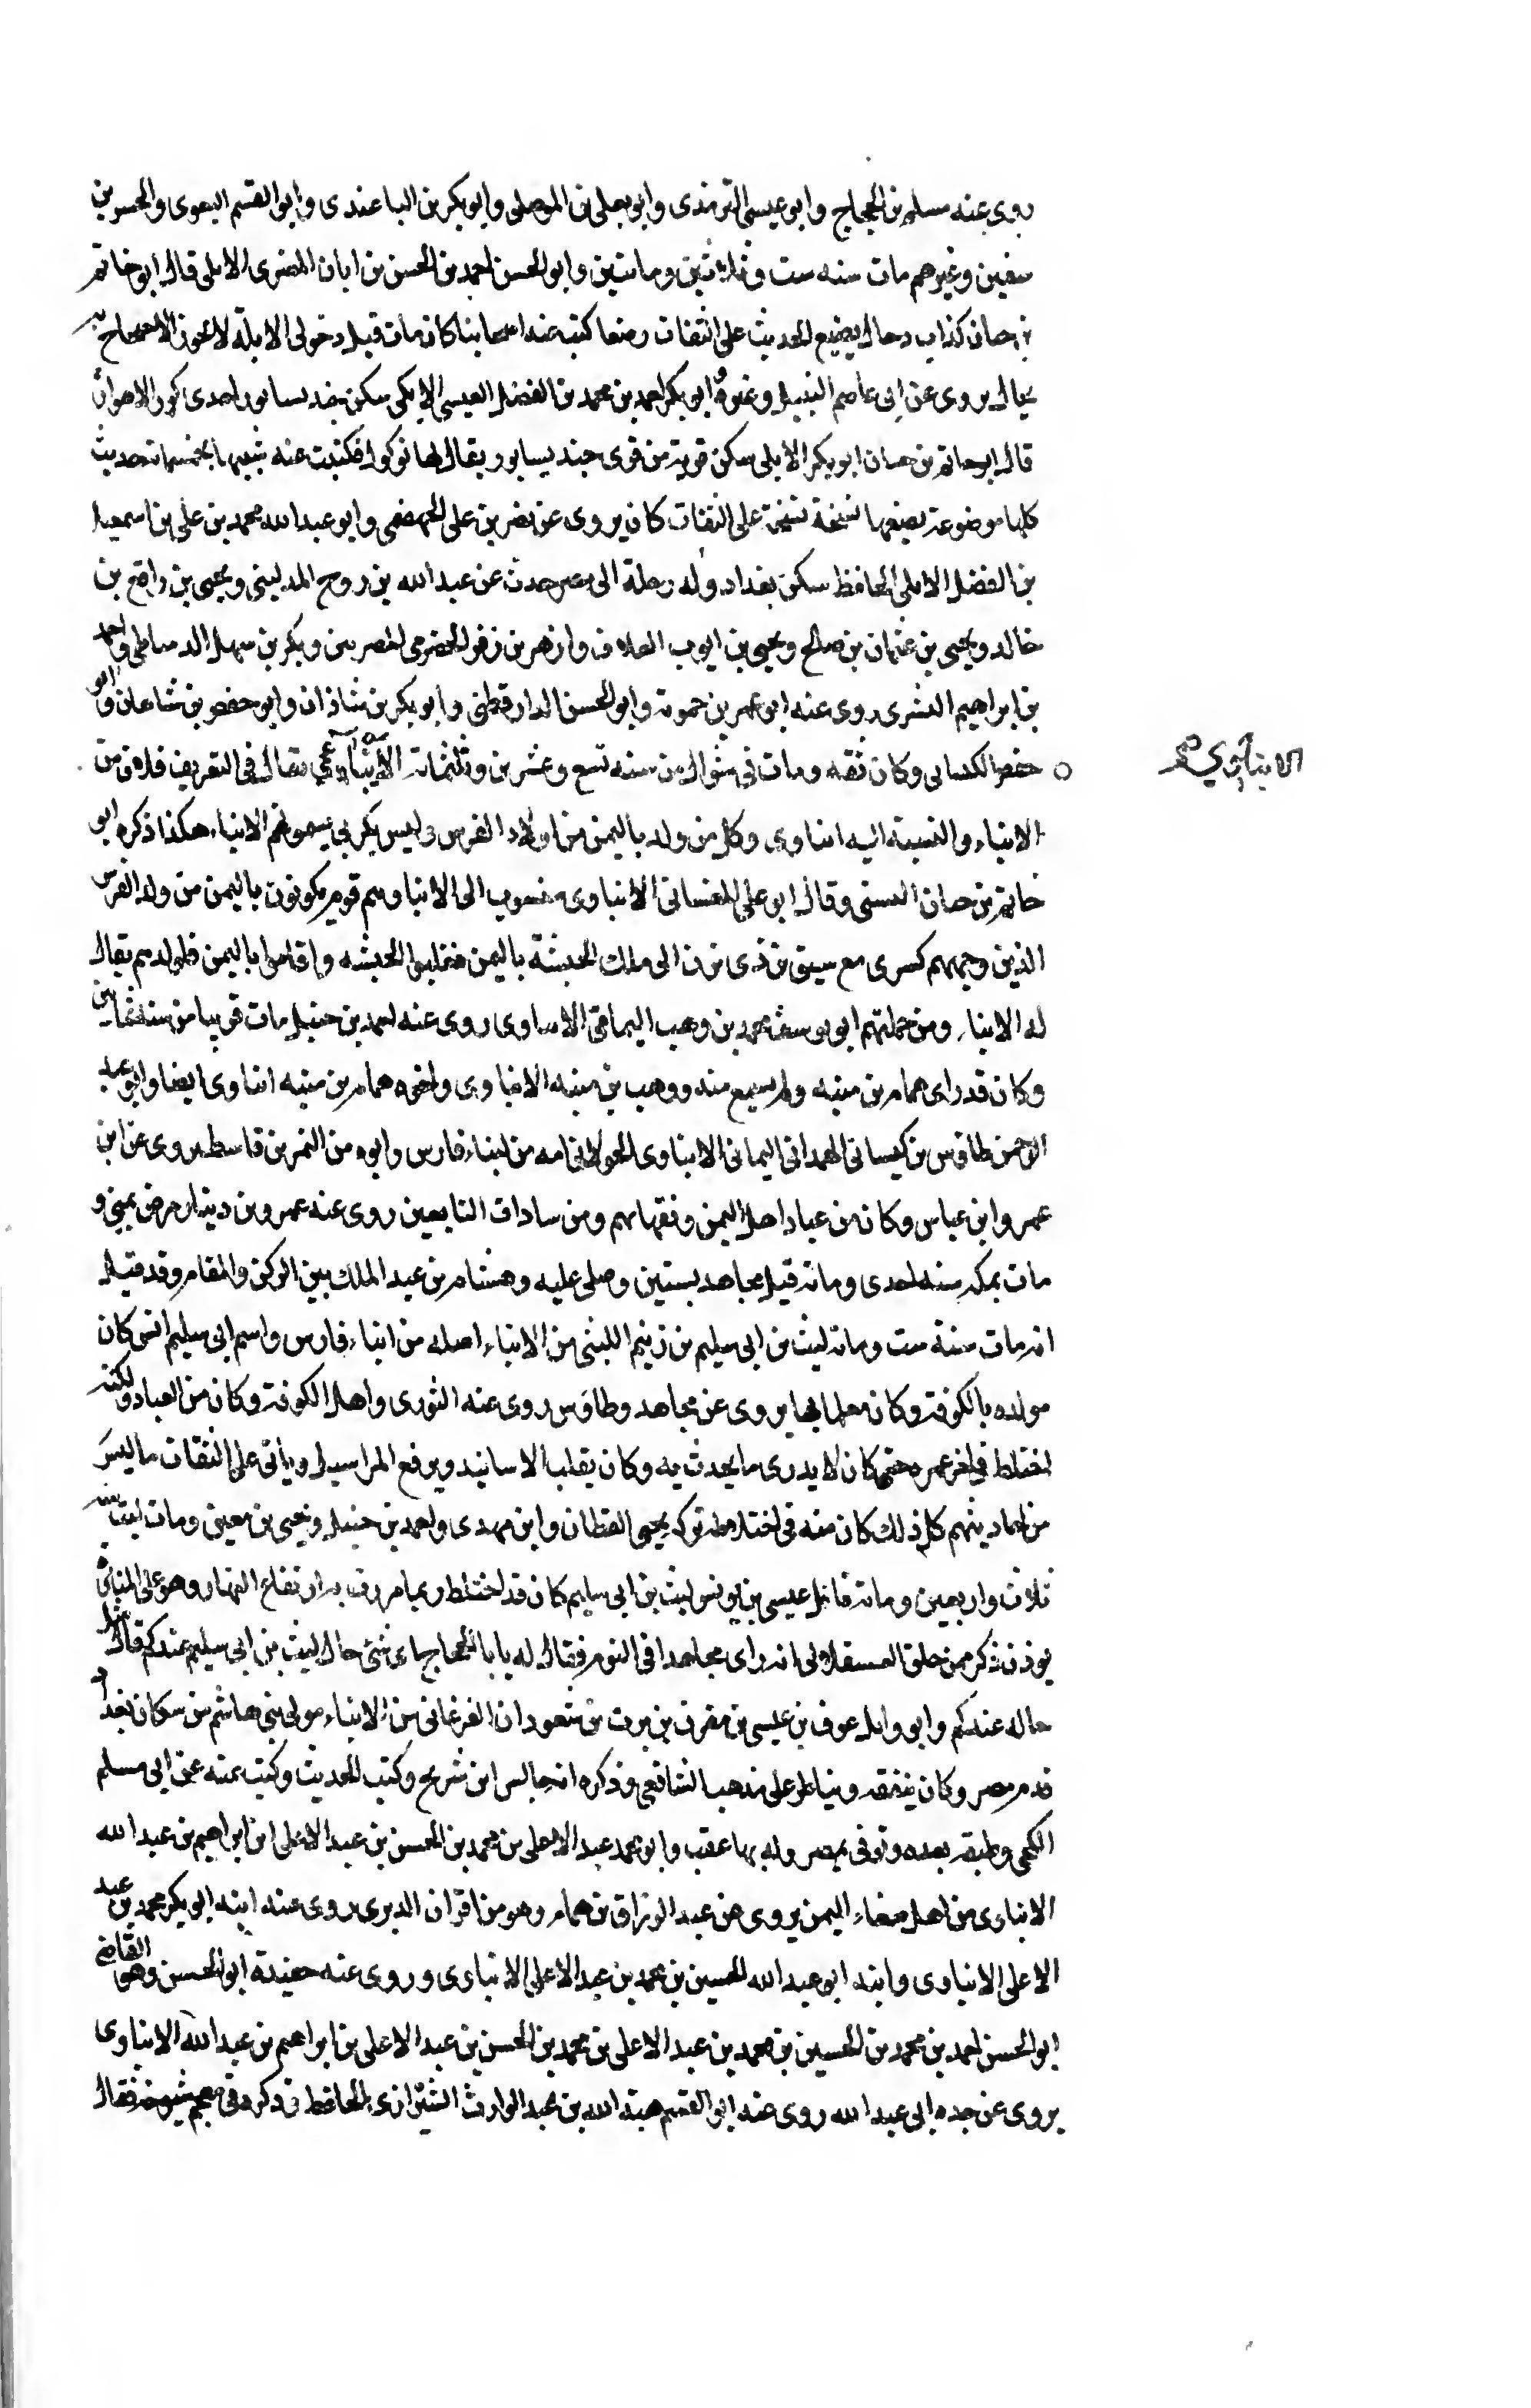 روى عنه مسلم بن الحجاج وابو عيسى الترمذى وابو يعلى بن الموصلى وابو بكر بن الباغندى وابو القسم البغوى والحسن بن
سفين وغيرهم مات سنه ست وثلاثين وماتين وابو الحسن احمد بن الحسن بن ابان المضرى الابلى قال ابو حاتم
بن حبان كذاب دجال يضع الحديث على الثقات وضعا كتب عنه اصحابنا كان مات قبل دخولى الابلة لاعون الاحتجاج به
بحال يروى عن ابى عاصم النبيل وغيره ابو بكر احمد بن محمد بن الفضل القيسى الابلى سكن جنديسابور احدى كور الاهواز
قال ابو حاتم بن حبان ابو بكر الابلى سكن قرية من قرى جنديسابور يقال لها نوكول فكتبت عنه شبيها بخمسمائة حديث
كلها موضوعة يضعها نسخة نسخة على الثقات كان يروى عن نصر بن على الجهضمى وابو عبد الله محمد بن على بن اسمعيل
بن الفضل الابلى الحافظ سكن بغداد وله رحلة الى مصر حدث عن عبد الله بن روح المداينى ويحيى بن نافع بن
خالد ويحيى بن عثمان بن صالح ويحيى بن ايوب العلاف وازهر بن زفر الحضرمى المصريين وبكر بن سهل الدمياطى واحمد
بن ابراهيم البسرى روى عنه ابو عمر بن حيويه وابو الحسن الدارقطنى وابو بكر بن شاذان وابو حفص بن شاهان وابو
حفص الكتانى وكان ثقه ومات فى شوال من سنه تسع وعشرين وثلثمائة الابناوى يقال فى التعريف فلان من
الابناوى
الابناء والنسبة اليه ابناوى وكل من ولد باليمن من اولاد الفرس وليس بعربى يسمونهم الابناء هكذا ذكره ابو
حاتم بن حبان البستى وقال ابو على الغسانى الابناوى منسوب الى الابنا وهم قوم يكونون باليمن من ولد الفرس
الذين وجههم كسرى مع سيف بن ذى يزن الى ملك الحبشة باليمن فغلبوا الحبشه واقاموا باليمن فلولدهم يقال
له الابناء ومن جملتهم ابو يوسف محمد بن وهب اليمانى الابناوى روى عنه احمد بن حنبل مات قريبا من سنة ثمانين
وكان قد راى همام بن منبه ولم يسمع منه ووهب بن منبه الابناوى واخوه همام بن منبه ابناوى ايضا وابو عبد
الرحمن طاوس بن كيسان الهمدانى اليمانى الابناوى الخولانى امه من ابناء فارس وابوه من النمر بن قاسط يروى عن ابن
عمر وابن عباس وكان من عباد اهل اليمن وفقهائهم ومن سادات التابعين روى عنه عمرو بن دينار مرض بمنى و
مات بمكه سنه احدى ومائة قبل مجاهد بسنتين وصلى عليه وهشام بن عبد الملك بين الركن والمقام وقد قيل
انه مات سنة ست ومائة ليث بن ابى سليم بن زنيم الليثى من الابناء اصله من ابناء فارس واسم ابى سليم انس كان
مولده بالكوفة وكان معلما بها يروى عن مجاهد وطاوس روى عنه الثورى واهل الكوفة وكان من العباد ولكنه
اختلط فى اخر عمره حتى كان لا يدرى ما يحدث به وكان يقلب الاسانيد ويرفع المراسيل ويأتى على الثقات ما ليس
من احاديثهم كل ذلك كان منه فى اختلاطه تركه يحيى القطان وابن مهدى واحمد بن حنبل ويحيى بن معين ومات ليث سنه
ثلاث واربعين ومائة قال عيسى بن يونس ليث بن ابى سليم كان قد اختلط ربما مررت به ارتفاع النهار وهو على المناره
يوذن ذكر ممن حلق العسقلانى انه راى مجاهدا فى النوم فقال له يا ابا الحجاج ماى شئ حال ليث بن ابى سليم عندكم قال مثل
حاله عندكم وابو وايل عوف بن عيسى بن مقرن بن برت بن شعودان الفرغانى من الابناء مولى بنى هاشم من سكان بغداد
قدم مصر وكان يتفقه ويناظر على مذهب الشافعى وذكره انه جالس ابن شريح وكتب الحديث وكتبت عنه عن ابى مسلم
الكجى وطبقة بعده وتوفى بمصر وله بها عقب وابو محمد عبد الاعلى بن محمد بن الحسن بن عبد الاعلى ابن ابراهيم بن عبد الله
الابناوى من اهل صنعاء اليمن يروى عن عبد الرزاق بن همام وهو من اقران الدبرى روى عنه ابنه ابو بكر محمد بن عبد
الاعلى الابناوى وابنه ابو عبد الله الحسين بن محمد بن عبد الاعلى الابناوى وروى عنه حفيده ابو الحسن وهو القاضى
ابو الحسن احمد بن محمد بن الحسين بن محمد بن عبد الاعلى بن محمد بن الحسن بن عبد الاعلى بن ابراهيم بن عبد الله الابناوى
يروى عن جده ابى عبد الله روى عنه ابو القسم هبة الله بن عبد الوارث الشيرازى الحافظ وذكره فى معجم شيوخه فقال